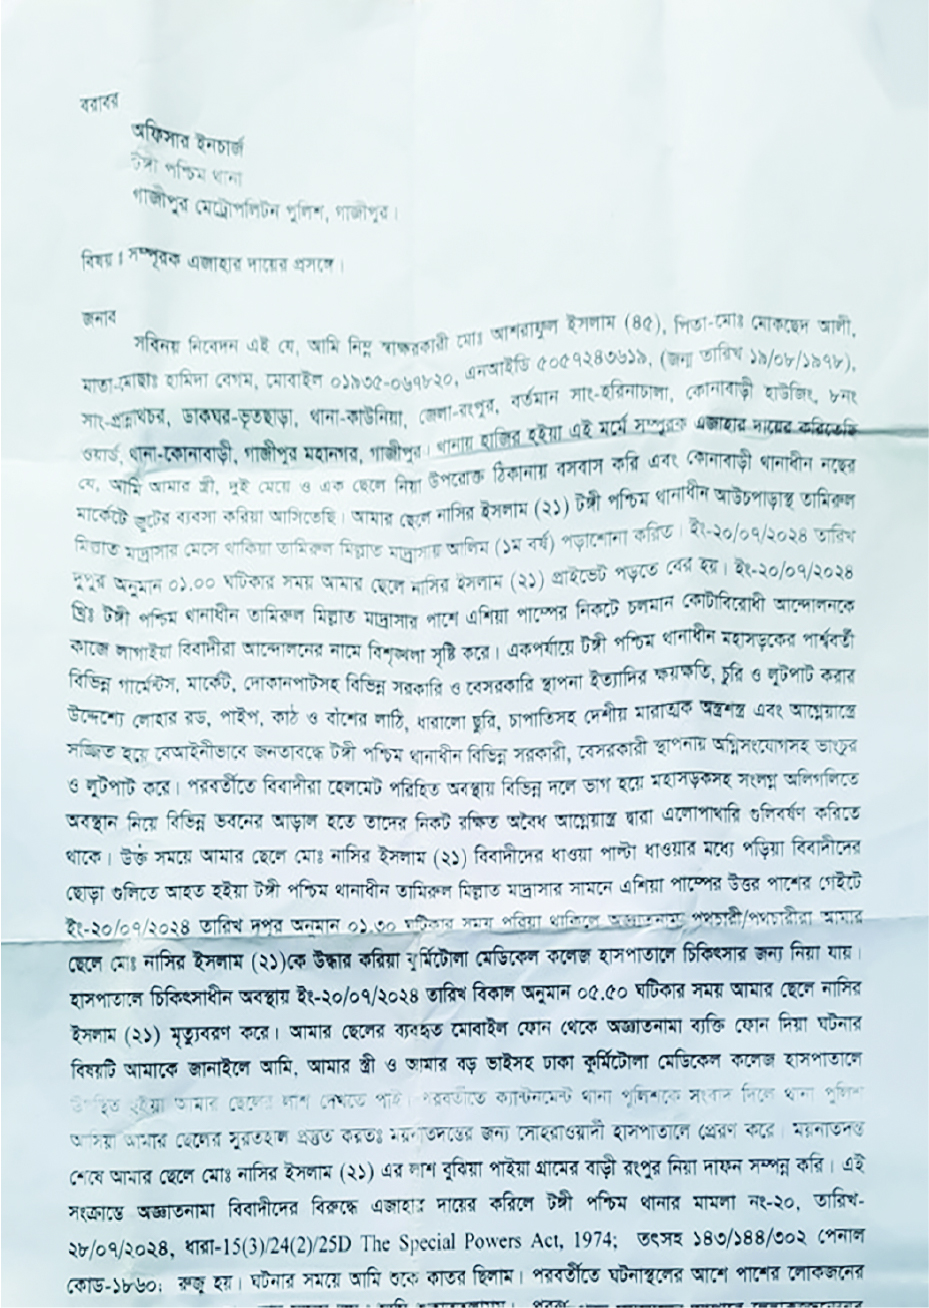 বরাবর
অফিসার ইনচার্জ
টঙ্গী পশ্চিম থানা
গাজীপুর মেট্রোপলিটন পুলিশ, গাজীপুর।
বিষয় ঃ সম্পূরক এজাহার দায়ের প্রসঙ্গে।
জনাব
সবিনয় নিবেদন এই যে, আমি নিম্ন স্বাক্ষরকারী মোঃ আশরাফুল ইসলাম (৪৫), পিতা-মোঃ মোকছেদ আলী,
মাতা-মোছাঃ হামিদা বেগম, মোবাইল ০১৯৩৫-০৬৭৮২০, এনআইডি ৫০৫৭২৪৩৬১৯, (জন্ম তারিখ ১৯/০৮/১৯৭৮),
সাং-প্রন্নাথচর, ডাকঘর-ভূতছাড়া, থানা-কাউনিয়া, জেলা-রংপুর, বর্তমান সাং-হরিনাচালা, কোনাবাড়ী হাউজিং, ৮নং
ওয়ার্ড, থানা-কোনাবাড়ী, গাজীপুর মহানগর, গাজীপুর। থানায় হাজির হইয়া এই মর্মে সম্পূরক এজাহার দায়ের করিতেছি
যে, আমি আমার স্ত্রী, দুই মেয়ে ও এক ছেলে নিয়া উপরোক্ত ঠিকানায় বসবাস করি এবং কোনাবাড়ী থানাধীন নছের
মার্কেটে জুটের ব্যবসা করিয়া আসিতেছি। আমার ছেলে নাসির ইসলাম (২১) টঙ্গী পশ্চিম থানাধীন আউচপাড়াস্থ তামিরুল
মিল্লাত মাদ্রাসার মেসে থাকিয়া তামিরুল মিল্লাত মাদ্রাসায় আলিম (১ম বর্ষ) পড়াশোনা করিত। ইং-২০/০৭/২০২৪ তারিখ
দুপুর অনুমান ০১.০০ ঘটিকার সময় আমার ছেলে নাসির ইসলাম (২১) প্রাইভেট পড়তে বের হয়। ইং-২০/০৭/২০২৪
খ্রিঃ টঙ্গী পশ্চিম থানাধীন তামিরুল মিল্লাত মাদ্রাসার পাশে এশিয়া পাম্পের নিকটে চলমান কোটাবিরোধী আন্দোলনকে
কাজে লাগাইয়া বিবাদীরা আন্দোলনের নামে বিশৃঙ্খলা সৃষ্টি করে। একপর্যায়ে টঙ্গী পশ্চিম থানাধীন মহাসড়কের পার্শ্ববর্তী
বিভিন্ন গার্মেন্টস, মার্কেট, দোকানপাটসহ বিভিন্ন সরকারি ও বেসরকারি স্থাপনা ইত্যাদির ক্ষয়ক্ষতি, চুরি ও লুটপাট করার
উদ্দেশ্যে লোহার রড, পাইপ, কাঠ ও বাঁশের লাঠি, ধারালো ছুরি, চাপাতিসহ দেশীয় মারাত্মক অস্ত্রশস্ত্র এবং আগ্নেয়াস্ত্রে
সজ্জিত হয়ে বেআইনীভাবে জনতাবদ্ধে টঙ্গী পশ্চিম থানাধীন বিভিন্ন সরকারী, বেসরকারী স্থাপনায় অগ্নিসংযোগসহ ভাংচুর
ও লুটপাট করে। পরবর্তীতে বিবাদীরা হেলমেট পরিহিত অবস্থায় বিভিন্ন দলে ভাগ হয়ে মহাসড়কসহ সংলগ্ন অলিগলিতে
অবস্থান নিয়ে বিভিন্ন ভবনের আড়াল হতে তাদের নিকট রক্ষিত অবৈধ আগ্নেয়াস্ত্র দ্বারা এলোপাথারি গুলিবর্ষণ করিতে
থাকে। উক্ত সময়ে আমার ছেলে মোঃ নাসির ইসলাম (২১) বিবাদীদের ধাওয়া পাল্টা ধাওয়ার মধ্যে পড়িয়া বিবাদীদের
ছোড়া গুলিতে আহত হইয়া টঙ্গী পশ্চিম থানাধীন তামিরুল মিল্লাত মাদ্রাসার সামনে এশিয়া পাম্পের উত্তর পাশের গেইটে
ইং-২০/০৭/২০২৪ তারিখ দুপুর অনুমান ০১.৩০ ঘটিকার সময় পরিয়া থাকিলে অজ্ঞাতনামা পথচারী/পথচারীরা আমার
ছেলে মোঃ নাসির ইসলাম (২১)কে উদ্ধার করিয়া কুর্মিটোলা মেডিকেল কলেজ হাসপাতালে চিকিৎসার জন্য নিয়া যায়।
হাসপাতালে চিকিৎসাধীন অবস্থায় ইং-২০/০৭/২০২৪ তারিখ বিকাল অনুমান ০৫.৫০ ঘটিকার সময় আমার ছেলে নাসির
ইসলাম (২১) মৃত্যুবরণ করে। আমার ছেলের ব্যবহৃত মোবাইল ফোন থেকে অজ্ঞাতনামা ব্যক্তি ফোন দিয়া ঘটনার
বিষয়টি আমাকে জানাইলে আমি, আমার স্ত্রী ও আমার বড় ভাইসহ ঢাকা কুর্মিটোলা মেডিকেল কলেজ হাসপাতালে
উপস্থিত হইয়া আমার ছেলের লাশ দেখতে পাই। পরবর্তীতে ক্যান্টনমেন্ট থানা পুলিশকে সংবাদ দিলে থানা পুলিশ
আসিয়া আমার ছেলের সুরতহাল প্রস্তুত করতঃ ময়নাতদন্তের জন্য সোহরাওয়ার্দী হাসপাতালে প্রেরণ করে। ময়নাতদন্ত
শেষে আমার ছেলে মোঃ নাসির ইসলাম (২১) এর লাশ বুঝিয়া পাইয়া গ্রামের বাড়ী রংপুর নিয়া দাফন সম্পন্ন করি। এই
সংক্রান্তে অজ্ঞাতনামা বিবাদীদের বিরুদ্ধে এজাহার দায়ের করিলে টঙ্গী পশ্চিম থানার মামলা নং-২০, তারিখ-
২৮/০৭/২০২৪, ধারা-15(3)/24(2)/25D The Special Powers Act, 1974; তৎসহ ১৪৩/১৪৪/৩০২ পেনাল
কোড-১৮৬০; রুজু হয়। ঘটনার সময়ে আমি শুকে কাতর ছিলাম। পরবর্তীতে ঘটনাস্থলের আশে পাশের লোকজনের